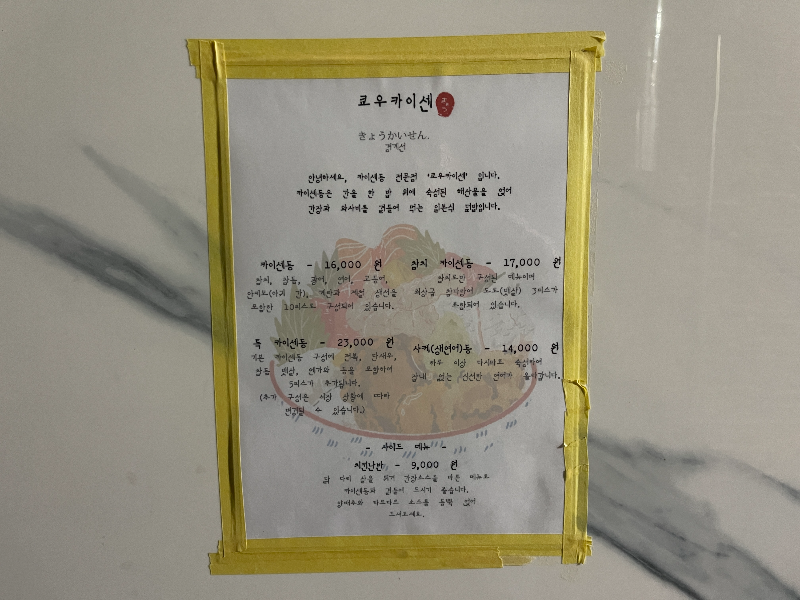 쿄우카이센
きょうかいせん.
경계선
안녕하세요, 카이센동 전문점 '쿄우카이센' 입니다.
카이센동은 간을 한 밥 위에 숙성된 해산물을 얹어
간장과 와사비를 곁들여 먹는 일본식 덮밥입니다.
카이센동 - 16,000 원
참치, 참돔, 광어, 연어, 고등어,
안키모(아귀 간), 계란과 제철 생선을
포함한 10피스로 구성되어 있습니다.
참치 카이센동 - 17,000 원
참치로만 구성된 메뉴이며
최상급 참다랑어 도로(뱃살) 3피스가
포함되어 있습니다.
특 카이센동 - 23,000 원
기본 카이센동 구성에 전복, 단새우,
참돔 뱃살, 연가와 등을 포함하여
5피스가 추가됩니다.
(추가 구성은 시장 상황에 따라
변경될 수 있습니다.)
사케(생연어)동 - 14,000 원
하루 이상 다시마로 숙성하여
잡내 없는 신선한 연어가 올라갑니다.
- 사이드 메뉴 -
치킨난반 - 9,000 원
닭 다리 살을 튀겨 간장소스를 바른 메뉴로
카이센동과 곁들여 드시기 좋습니다.
양배추와 타르타르 소스를 듬뿍 얹어
드셔보세요.